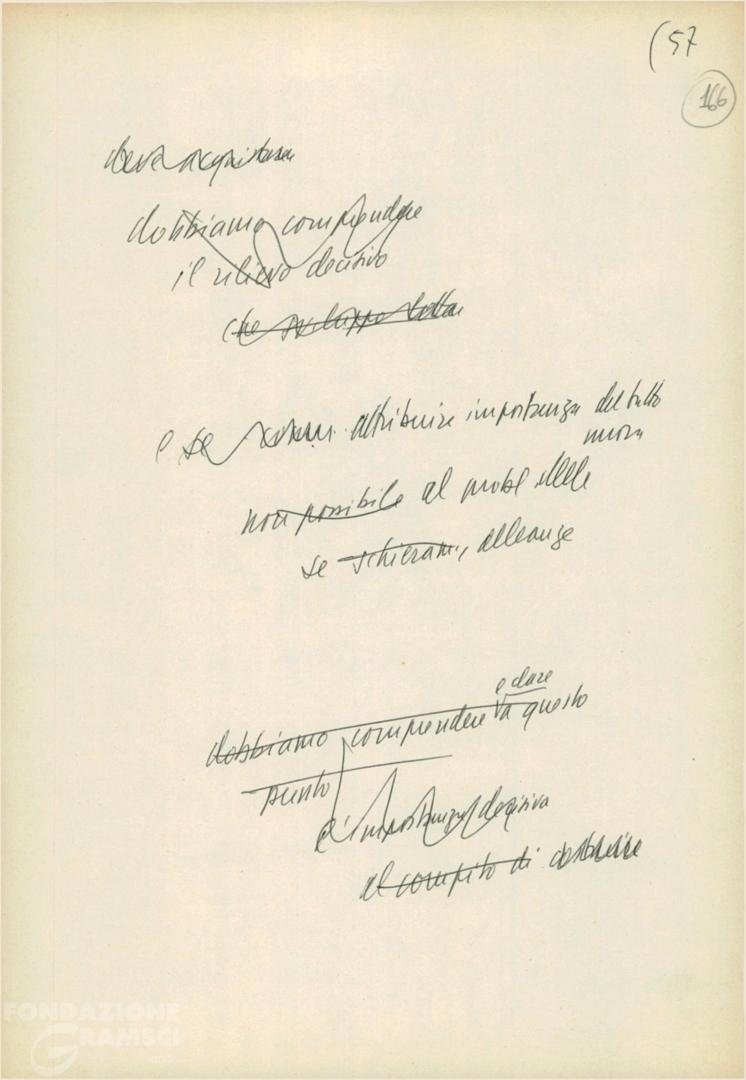 (57
166
deve acquistare
dobbiamo comprendere
il rilievo decisivo
che sviluppo lotta
e se attribuire importanza del tutto
nuova
non possibile al probl delle
se schieram., alleanze
e dare
dobbiamo comprendere a questo
punto
l'importanza decisiva
al compito di costruire
FONDAZIONE
GRAMSCI